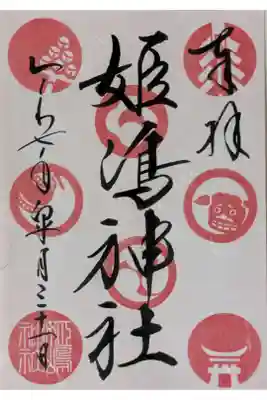 奉拝
姫嶋神社
令和七年皐月三十一日
姫嶋神社